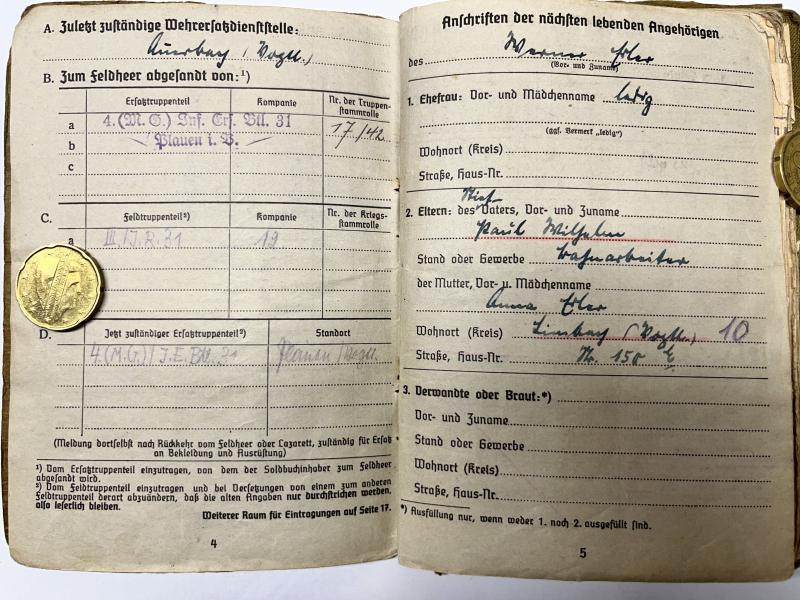 A. Zuletzt zuständige Wehrersatzdienststelle:
Auerbach (Vogtl.)
B. Zum Feldheer abgesandt von:¹)
Ersatztruppenteil Kompanie Nr. der Truppen-
stammrolle
a 4. (M. G.) Inf. Ers. Btl. 31
17/42
b Plauen i. V.
c
C. Feldtruppenteil²) Kompanie Nr. der Kriegs-
stammrolle
a III./J.R. 31 12
D. Jetzt zuständiger Ersatztruppenteil²) Standort
4.(M.G.)/J.E.Btl. 31 Plauen/Vogtl.
(Meldung dortselbst nach Rückkehr vom Feldheer oder Lazarett, zuständig für Ersatz
an Bekleidung und Ausrüstung)
¹) Vom Ersatztruppenteil einzutragen, von dem der Soldbuchinhaber zum Feldheer
abgesandt wird.
²) Vom Feldtruppenteil einzutragen und bei Versetzungen von einem zum anderen
Feldtruppenteil derart abzuändern, daß die alten Angaben nur durchstrichen werden,
also leserlich bleiben.
Weiterer Raum für Eintragungen auf Seite 17.
4
Anschriften der nächsten lebenden Angehörigen
des Werner Erler
(Vor- und Zuname)
1. Ehefrau: Vor- und Mädchenname ledig
(ggf. Vermerk „ledig“)
Wohnort (Kreis)
Straße, Haus-Nr.
2. Eltern: des Vaters, Vor- und Zuname
Paul Wilhelm
Stand oder Gewerbe Bahnarbeiter
der Mutter, Vor- u. Mädchenname
Anna Erler
Wohnort (Kreis) Limbach (Vogtl.) 10
Straße, Haus-Nr. Nr. 150
3. Verwandte oder Braut:*)
Vor- und Zuname
Stand oder Gewerbe
Wohnort (Kreis)
Straße, Haus-Nr.
*) Ausfüllung nur, wenn weder 1. noch 2. ausgefüllt sind.
5